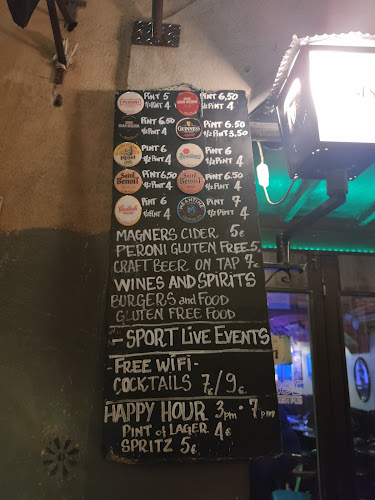 PINT 5
1/2 PINT 4
PINT 6,50
1/2 PINT 4
PINT 6.50
1/2 PINT 4
GUINNESS
PINT 6.50
1/2 PINT 3,50
PINT 6
1/2 PINT 4
PINT 6
1/2 PINT 4
Saint Benoit
PINT 6.50
1/2 PINT 4
Saint Benoit
PINT 6.50
1/2 PINT 4
PINT 6
1/2 PINT 4
PINT 7
1/2 PINT 4
MAGNERS CIDER 5€
PERONI GLUTEN FREE 5
CRAFT BEER ON TAP 7€
WINES AND SPIRITS
BURGERS and FOOD
GLUTEN FREE FOOD
- SPORT LIVE EVENTS
- FREE WIFI -
COCKTAILS 7€/9€
HAPPY HOUR 3pm · 7pm
PINT of LAGER 4€
SPRITZ 5€